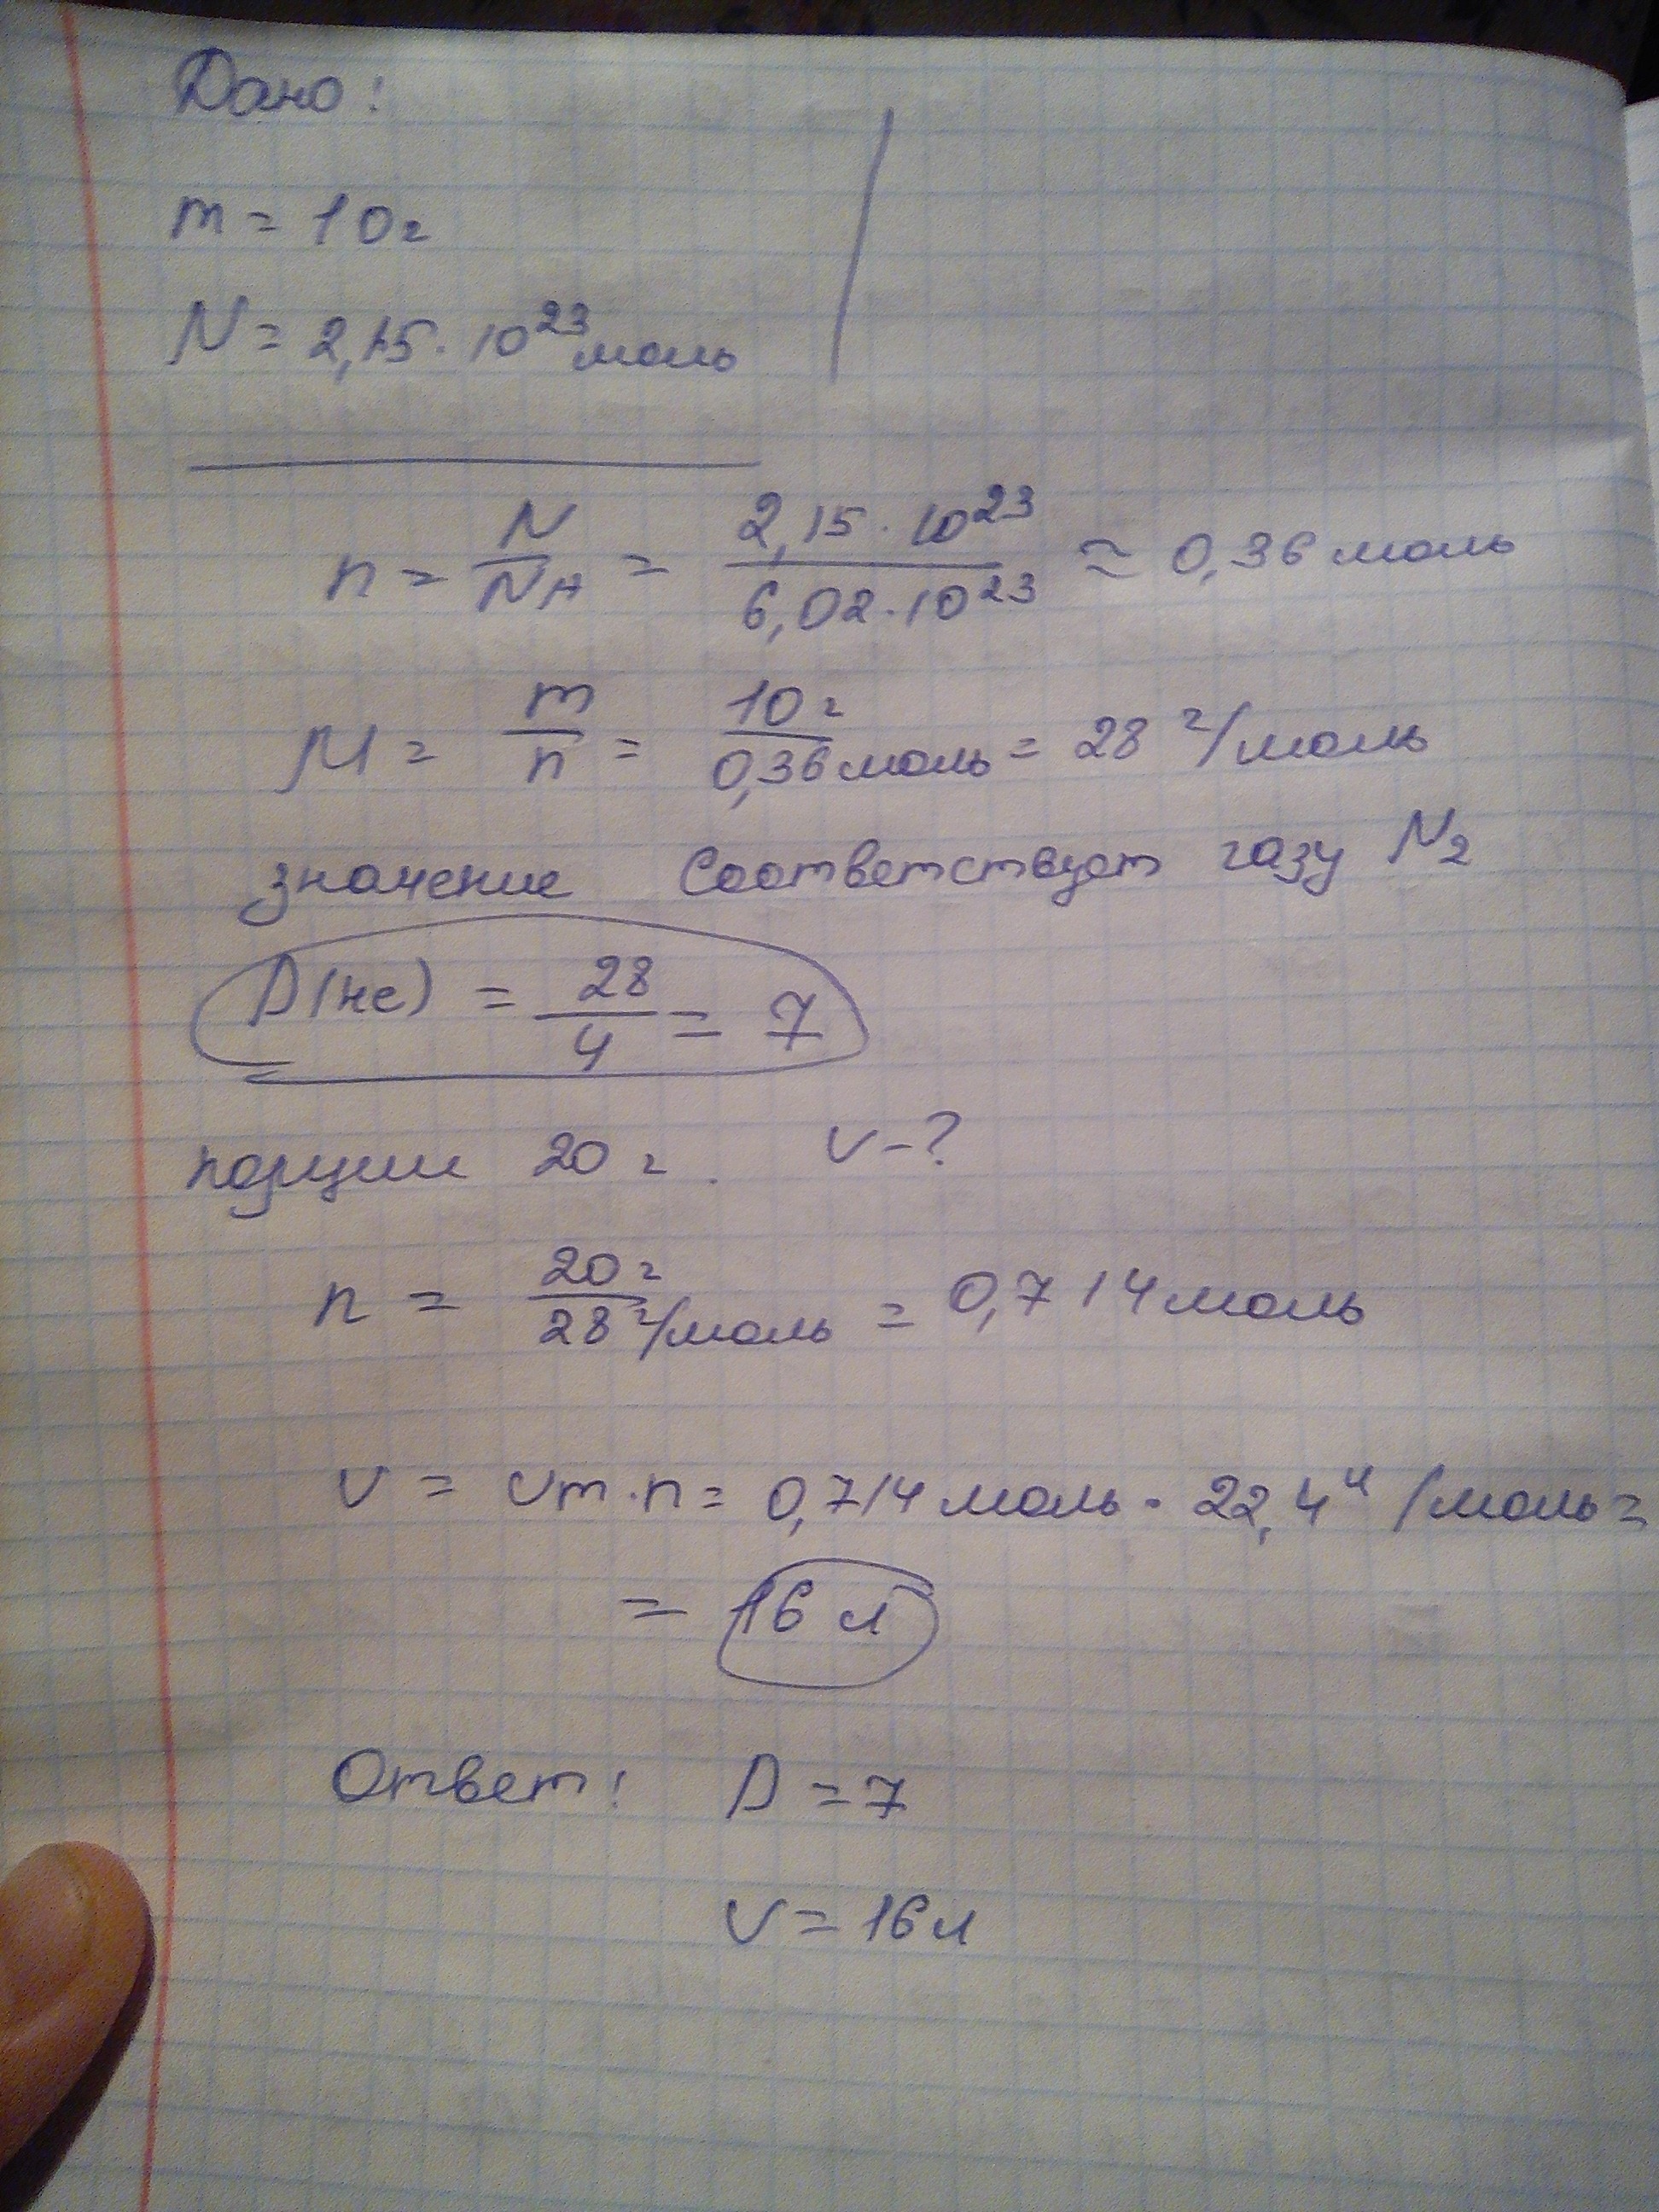 Дано:
m = 10 г
N = 2,15 · 10²³ моль
n = N/NA = 2,15 · 10²³ / 6,02 · 10²³ ≈ 0,36 моль
M = m/n = 10 г / 0,36 моль = 28 г/моль
значение соответствует газу N₂
D(He) = 28/4 = 7
порции 20 г. V - ?
n = 20 г / 28 г/моль = 0,714 моль
V = Vm · n = 0,714 моль · 22,4 л/моль =
= 16 л
Ответ: D = 7
V = 16 л